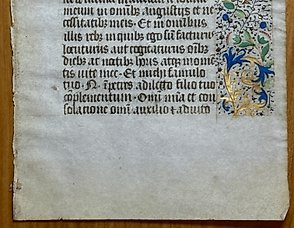 metur in omībus angustijs et ne
cessitatibus meis. Et in omībus
illis reb; in quib; ego sū facturu
locuturus aut cogitaturus oīb;
dieb; ac noctib; horis atqe mome
tis vite mee. Et michi famulo
tuo. N. īpetres a dilecto filio tuo
complementum. Omī mīa et con
solatione omī auxilio et adiuto